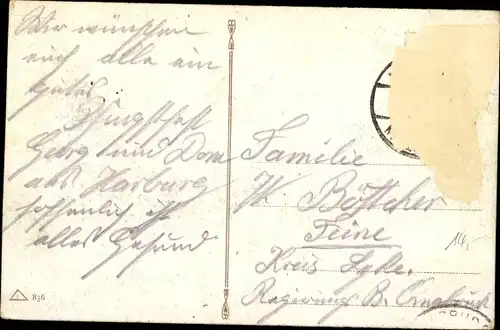 Wir wünschen
euch alle ein
gutes
Pfingstfest
Georg und Dora
aus Harburg
hoffentlich ist
alles Gesund
Familie
W. Böttcher
Feine
Kreis Syke
Regierungs B. Osnabrück
10,-
836